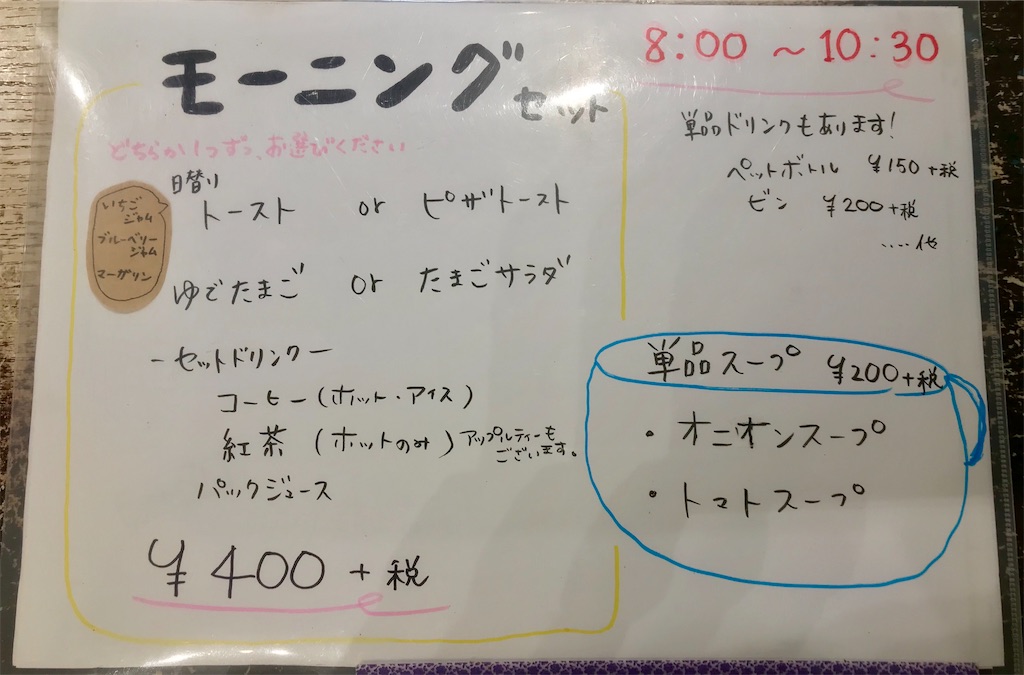 モーニングセット
8:00 ～ 10:30
どちらか1つずつ、お選びください
いちご
ジャム
ブルーベリー
ジャム
マーガリン
日替り
トースト or ピザトースト
ゆでたまご or たまごサラダ
ーセットドリンクー
コーヒー(ホット・アイス)
紅茶 (ホットのみ) アップルティーも
ございます。
パックジュース
¥400 + 税
単品ドリンクもあります!
ペットボトル ¥150 +税
ビン ¥200 +税
.....他
単品スープ ¥200 +税
・オニオンスープ
・トマトスープ